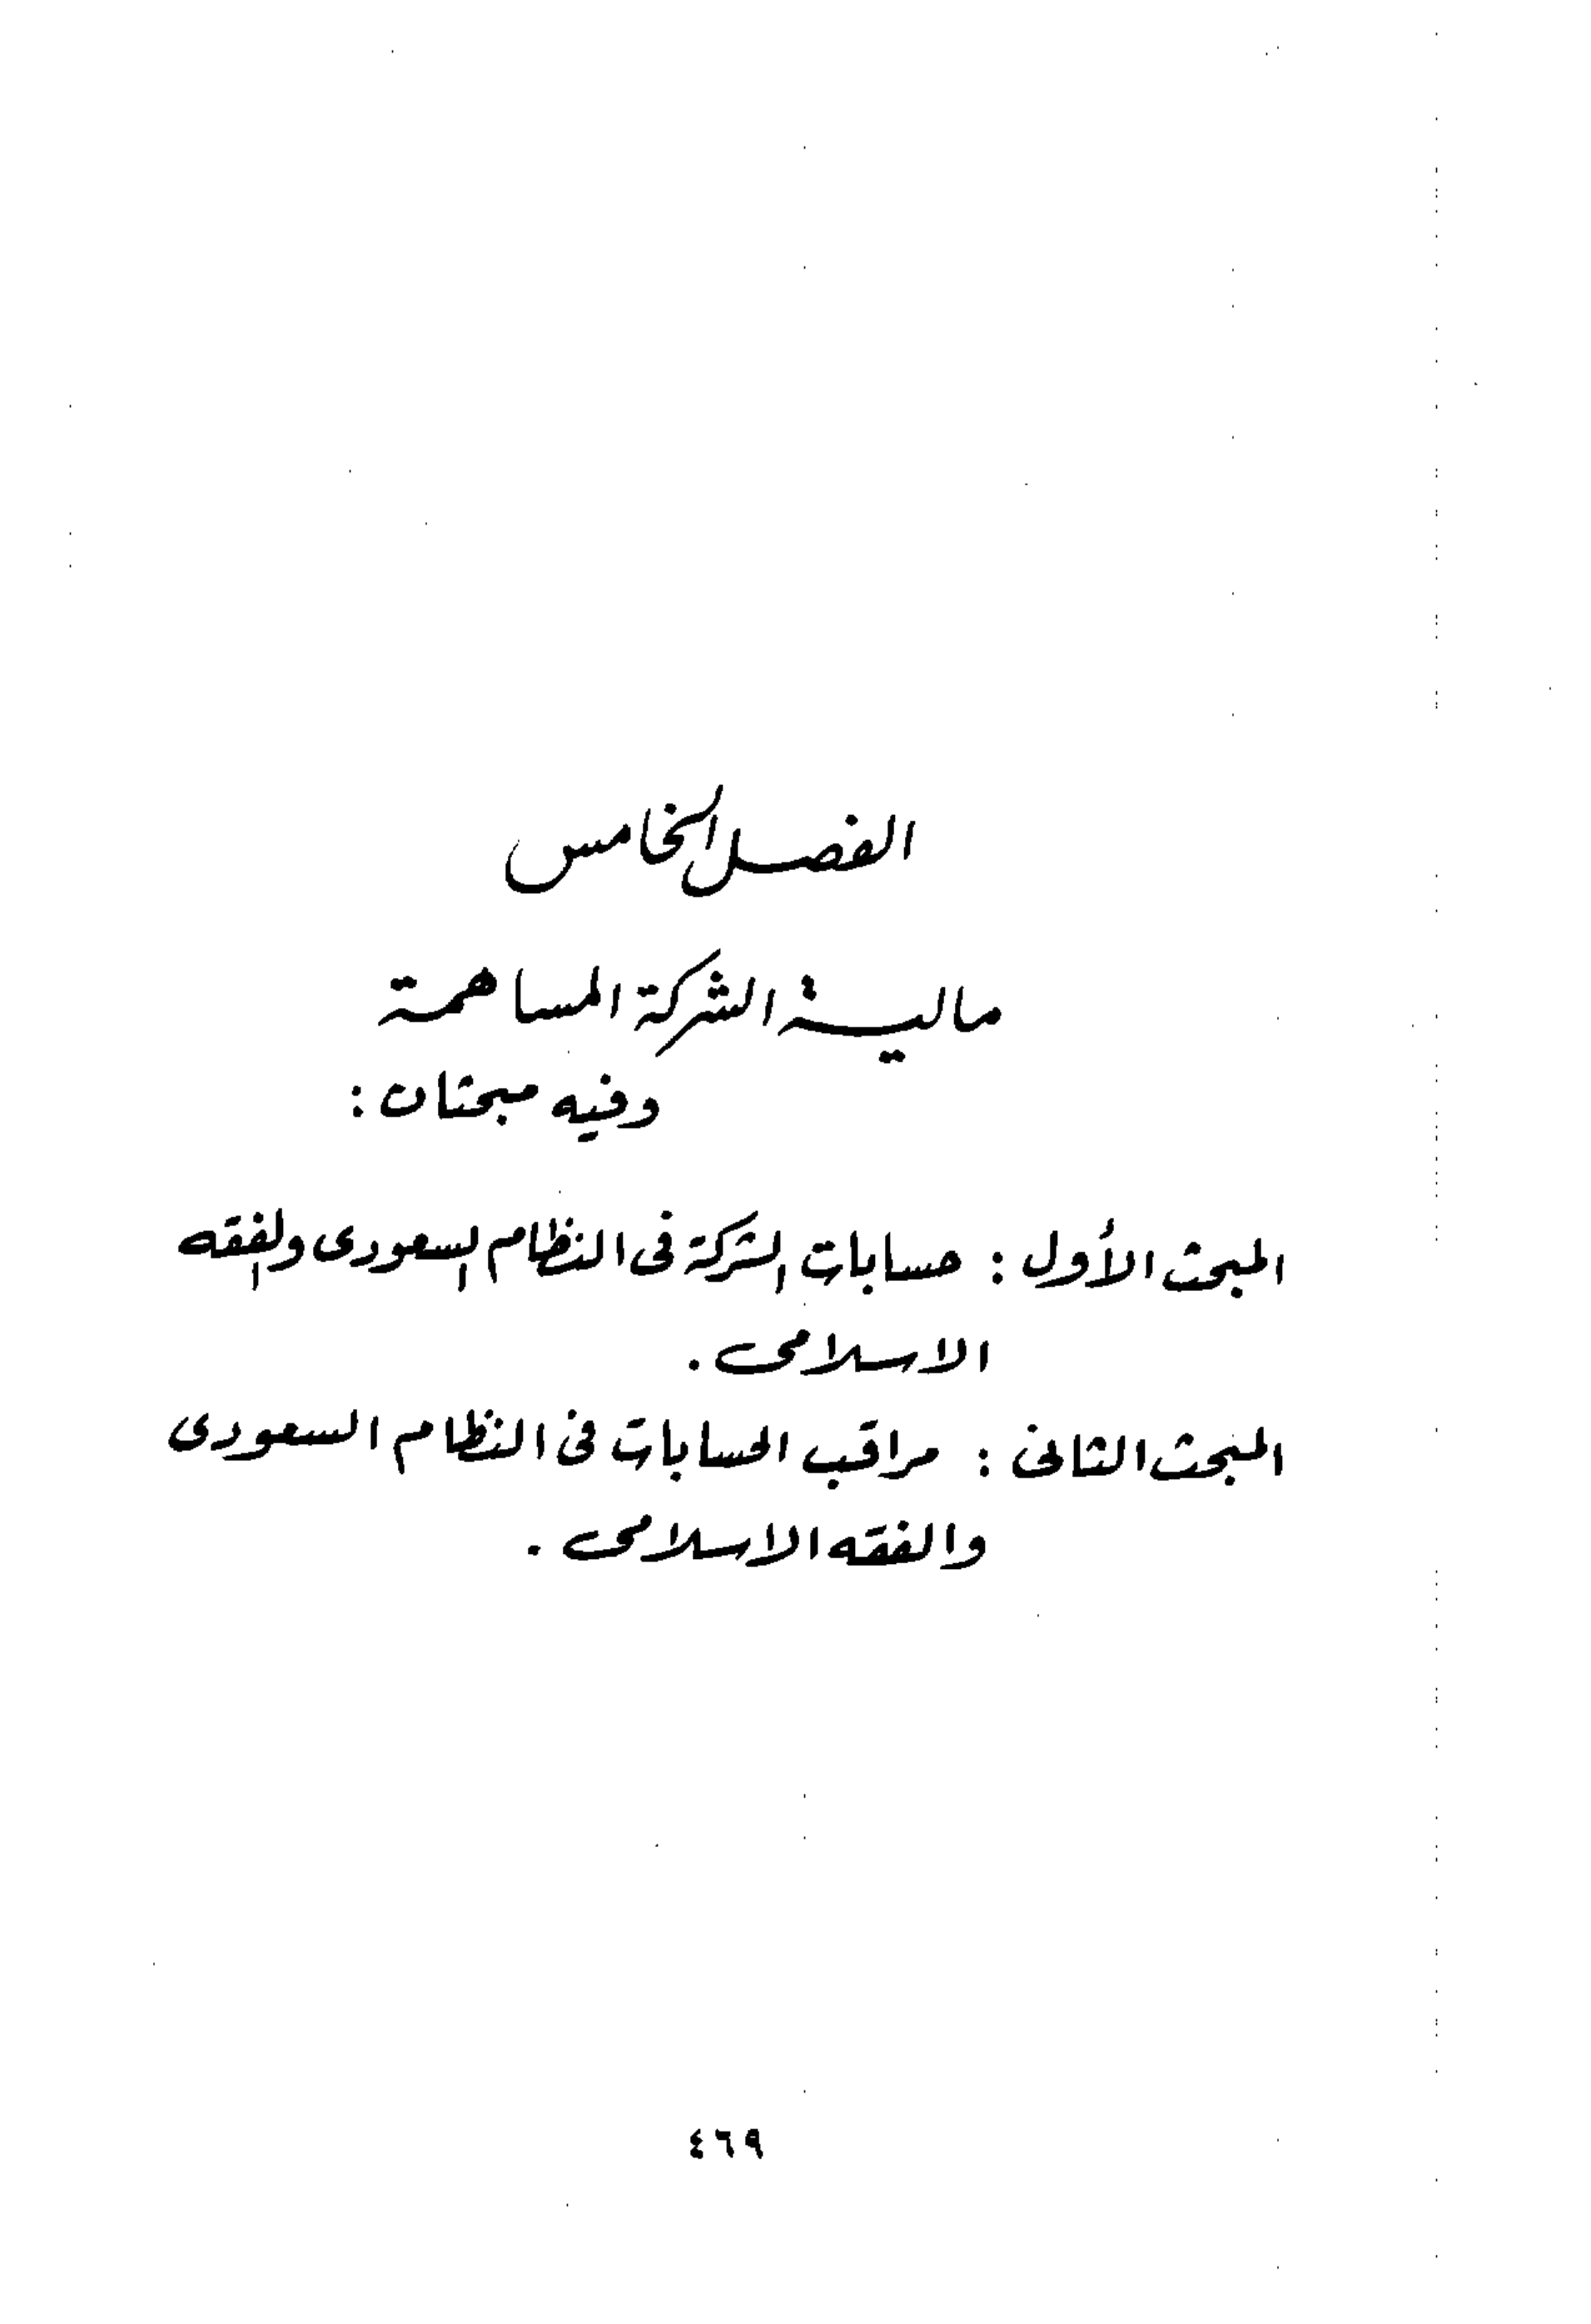 الفصل الخامس
مالية الشركة المساهمة
وفيه مبحثان :
المبحث الأول : حسابات الشركة فى النظام السعودى والفقه
الاسلامى .
المبحث الثانى : مراقب الحسابات فى النظام السعودى
والفقه الاسلامى .
٤٦٩